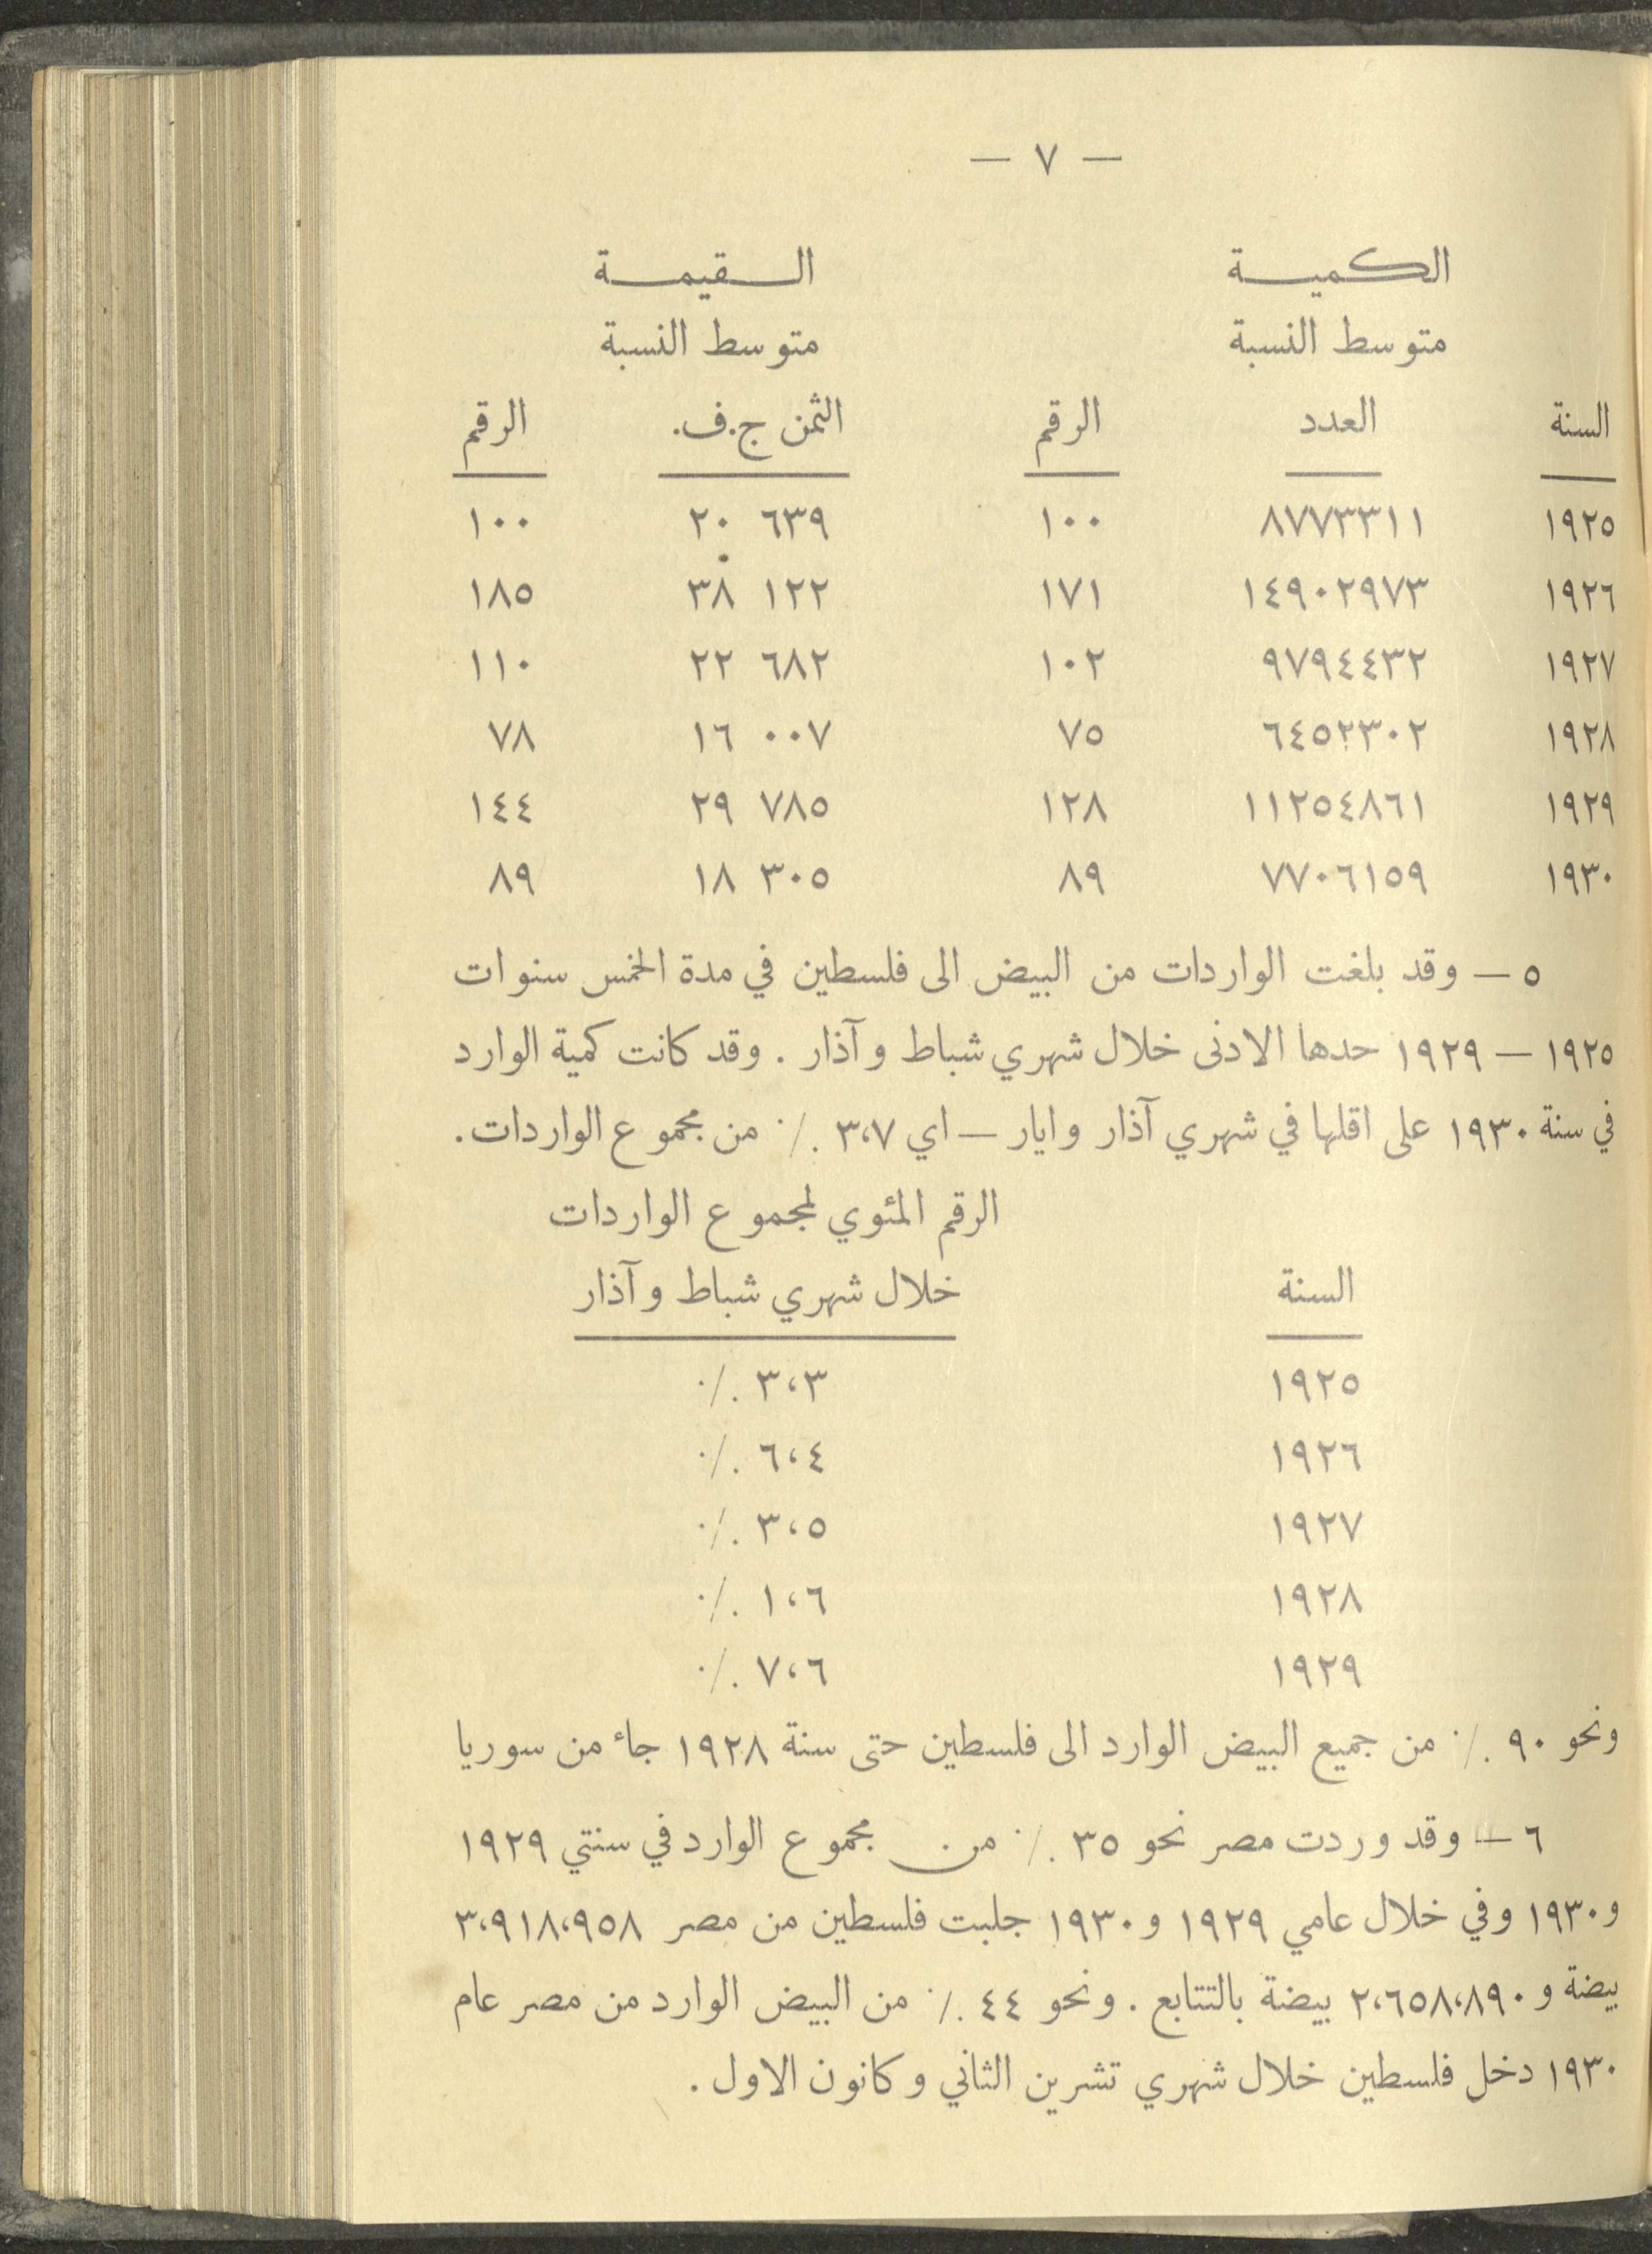 — ٧ —
الكميــة القيمــة
متوسط النسبة متوسط النسبة
السنة العدد الرقم الثمن ج.ف. الرقم
١٩٢٥ ٨٧٧٣٣١١ ١٠٠ ٢٠ ٦٣٩ ١٠٠
١٩٢٦ ١٤٩٠٢٩٧٣ ١٧١ ٣٨ ١٢٢ ١٨٥
١٩٢٧ ٩٧٩٤٤٣٢ ١٠٢ ٢٢ ٦٨٢ ١١٠
١٩٢٨ ٦٤٥٢٣٠٢ ٧٥ ١٦ ٠٠٧ ٧٨
١٩٢٩ ١١٢٥٤٨٦١ ١٢٨ ٢٩ ٧٨٥ ١٤٤
١٩٣٠ ٧٧٠٦١٥٩ ٨٩ ١٨ ٣٠٥ ٨٩
٥ — وقد بلغت الواردات من البيض الى فلسطين في مدة الخمس سنوات
١٩٢٥ — ١٩٢٩ حدها الادنى خلال شهري شباط وآذار . وقد كانت كمية الوارد
في سنة ١٩٣٠ على اقلها في شهري آذار وايار — اي ٣،٧ ٪ من مجموع الواردات.
الرقم المئوي لمجموع الواردات
السنة خلال شهري شباط وآذار
١٩٢٥ ٣،٣ ٪
١٩٢٦ ٦،٤ ٪
١٩٢٧ ٣،٥ ٪
١٩٢٨ ١،٦ ٪
١٩٢٩ ٧،٦ ٪
ونحو ٩٠ ٪ من جميع البيض الوارد الى فلسطين حتى سنة ١٩٢٨ جاء من سوريا
٦ — وقد وردت مصر نحو ٣٥ ٪ من مجموع الوارد في سنتي ١٩٢٩
و١٩٣٠ وفي خلال عامي ١٩٢٩ و١٩٣٠ جلبت فلسطين من مصر ٣،٩١٨،٩٥٨
بيضة و ٢،٦٥٨،٨٩٠ بيضة بالتتابع . ونحو ٤٤ ٪ من البيض الوارد من مصر عام
١٩٣٠ دخل فلسطين خلال شهري تشرين الثاني وكانون الاول .